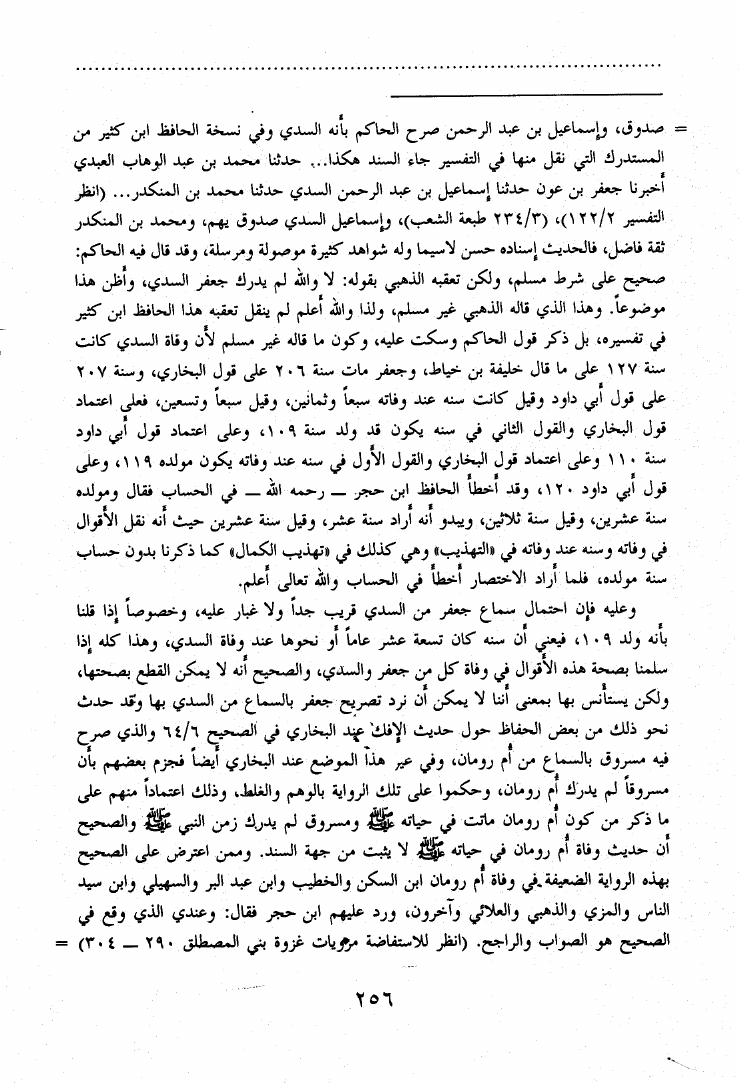 = صدوق، وإسماعيل بن عبد الرحمن صرح الحاكم بأنه السدي وفي نسخة الحافظ ابن كثير من
المستدرك التي نقل منها في التفسير جاء السند هكذا... حدثنا محمد بن عبد الوهاب العبدي
أخبرنا جعفر بن عون حدثنا إسماعيل بن عبد الرحمن السدي حدثنا محمد بن المنكدر... (انظر
التفسير ١٢٢/٢)، (٢٣٤/٣ طبعة الشعب)، وإسماعيل السدي صدوق يهم، ومحمد بن المنكدر
ثقة فاضل، فالحديث إسناده حسن لاسيما وله شواهد كثيرة موصولة ومرسلة، وقد قال فيه الحاكم:
صحيح على شرط مسلم، ولكن تعقبه الذهبي بقوله: لا والله لم يدرك جعفر السدي، وأظن هذا
موضوعاً. وهذا الذي قاله الذهبي غير مسلم، ولذا والله أعلم لم ينقل تعقبه هذا الحافظ ابن كثير
في تفسيره، بل ذكر قول الحاكم وسكت عليه، وكون ما قاله غير مسلم لأن وفاة السدي كانت
سنة ١٢٧ على ما قال خليفة بن خياط، وجعفر مات سنة ٢٠٦ على قول البخاري، وسنة ٢٠٧
على قول أبي داود وقيل كانت سنه عند وفاته سبعاً وثمانين، وقيل سبعاً وتسعين، فعلى اعتماد
قول البخاري والقول الثاني في سنه يكون قد ولد سنة ١٠٩، وعلى اعتماد قول أبي داود
سنة ١١٠ وعلى اعتماد قول البخاري والقول الأول في سنه عند وفاته يكون مولده ١١٩، وعلى
قول أبي داود ١٢٠، وقد أخطأ الحافظ ابن حجر ــ رحمه الله ــ في الحساب فقال ومولده
سنة عشرين، وقيل سنة ثلاثين، ويبدو أنه أراد سنة عشر، وقيل سنة عشرين حيث أنه نقل الأقوال
في وفاته وسنه عند وفاته في «التهذيب» وهي كذلك في «تهذيب الكمال» كما ذكرنا بدون حساب
سنة مولده، فلما أراد الاختصار أخطأ في الحساب والله تعالى أعلم.
وعليه فإن احتمال سماع جعفر من السدي قريب جداً ولا غبار عليه، وخصوصاً إذا قلنا
بأنه ولد ١٠٩، فيعني أن سنه كان تسعة عشر عاماً أو نحوها عند وفاة السدي، وهذا كله إذا
سلمنا بصحة هذه الأقوال في وفاة كل من جعفر والسدي، والصحيح أنه لا يمكن القطع بصحتها،
ولكن يستأنس بها بمعنى أننا لا يمكن أن نرد تصريح جعفر بالسماع من السدي بها وقد حدث
نحو ذلك من بعض الحفاظ حول حديث الإفك عند البخاري في الصحيح ٦٤/٦ والذي صرح
فيه مسروق بالسماع من أم رومان، وفي غير هذا الموضع عند البخاري أيضاً فجزم بعضهم بأن
مسروقاً لم يدرك أم رومان، وحكموا على تلك الرواية بالوهم والغلط، وذلك اعتماداً منهم على
ما ذكر من كون أم رومان ماتت في حياته ﷺ ومسروق لم يدرك زمن النبي ﷺ والصحيح
أن حديث وفاة أم رومان في حياته ﷺ لا يثبت من جهة السند. وممن اعترض على الصحيح
بهذه الرواية الضعيفة في وفاة أم رومان ابن السكن والخطيب وابن عبد البر والسهيلي وابن سيد
الناس والمزي والذهبي والعلائي وآخرون، ورد عليهم ابن حجر فقال: وعندي الذي وقع في
الصحيح هو الصواب والراجح. (انظر للاستفاضة مرويات غزوة بني المصطلق ٢٩٠ ــ ٣٠٤) =
٢٥٦